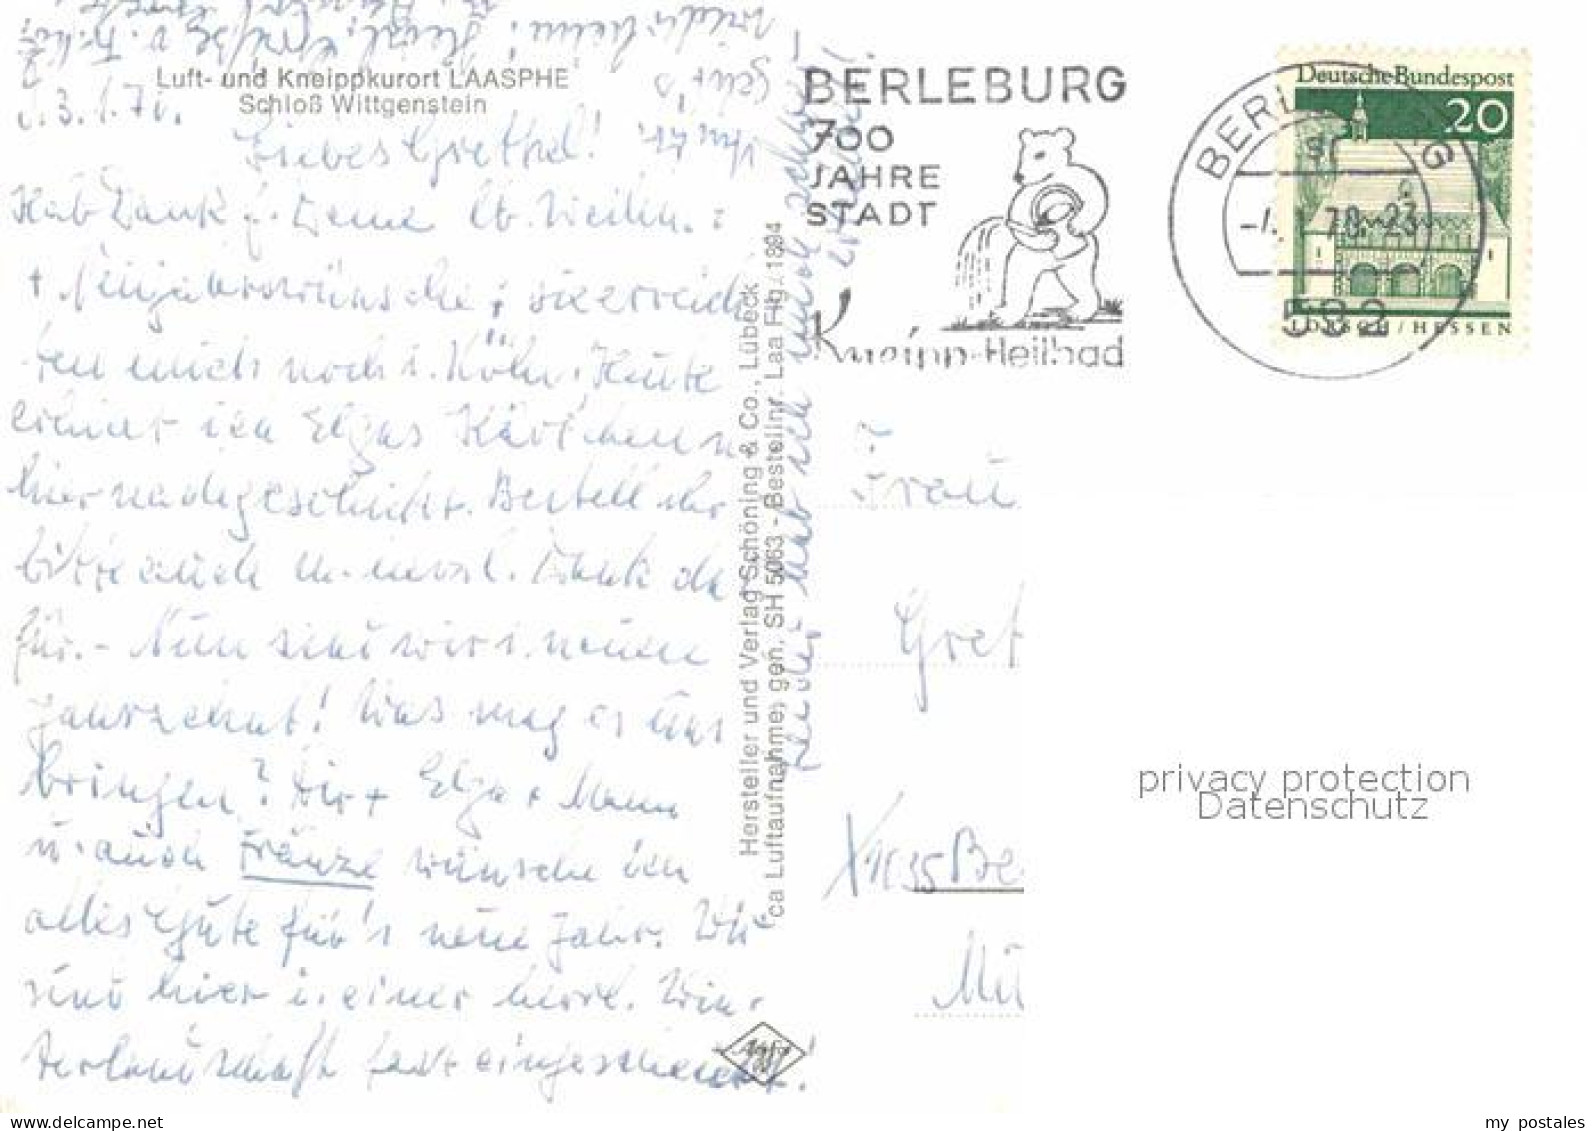 Luft- und Kneippkurort LAASPHE
Schloß Wittgenstein
d. 3.1.70.
Liebes Grethel!
Hab Dank f. Deine lb. Weihn.-
+ Neujahrswünsche; sie erreich
ten mich noch i. Köln; Heute
erhielt ich Elgas Kärtchen n
hier nachgeschickt. Bestell ihr
bitte auch m. herzl. Dank da
für.- Nun sind wir i. neuen
Jahrzehnt! Was mag es uns
bringen? Dir + Elga + Mann
u. auch Fränze wünsche ich
alles Gute für's neue Jahr. Wir
sind hier i. einer herrl. Win-
terlandschaft fast eingeschneit!
Hersteller und Verlag Schöning & Co., Lübeck
ca Luftaufnahme, gen. SH 5063 - Bestellnr. Laa Flg. 1884
BERLEBURG
700
JAHRE
STADT
Kneipp-Heilbad
BERL G
70.-23
592
Deutsche Bundespost
20
LORSCH/HESSEN
Frau
Gret
X 1135 Be
Mü
privacy protection
Datenschutz
www.delcampe.net
my_postales